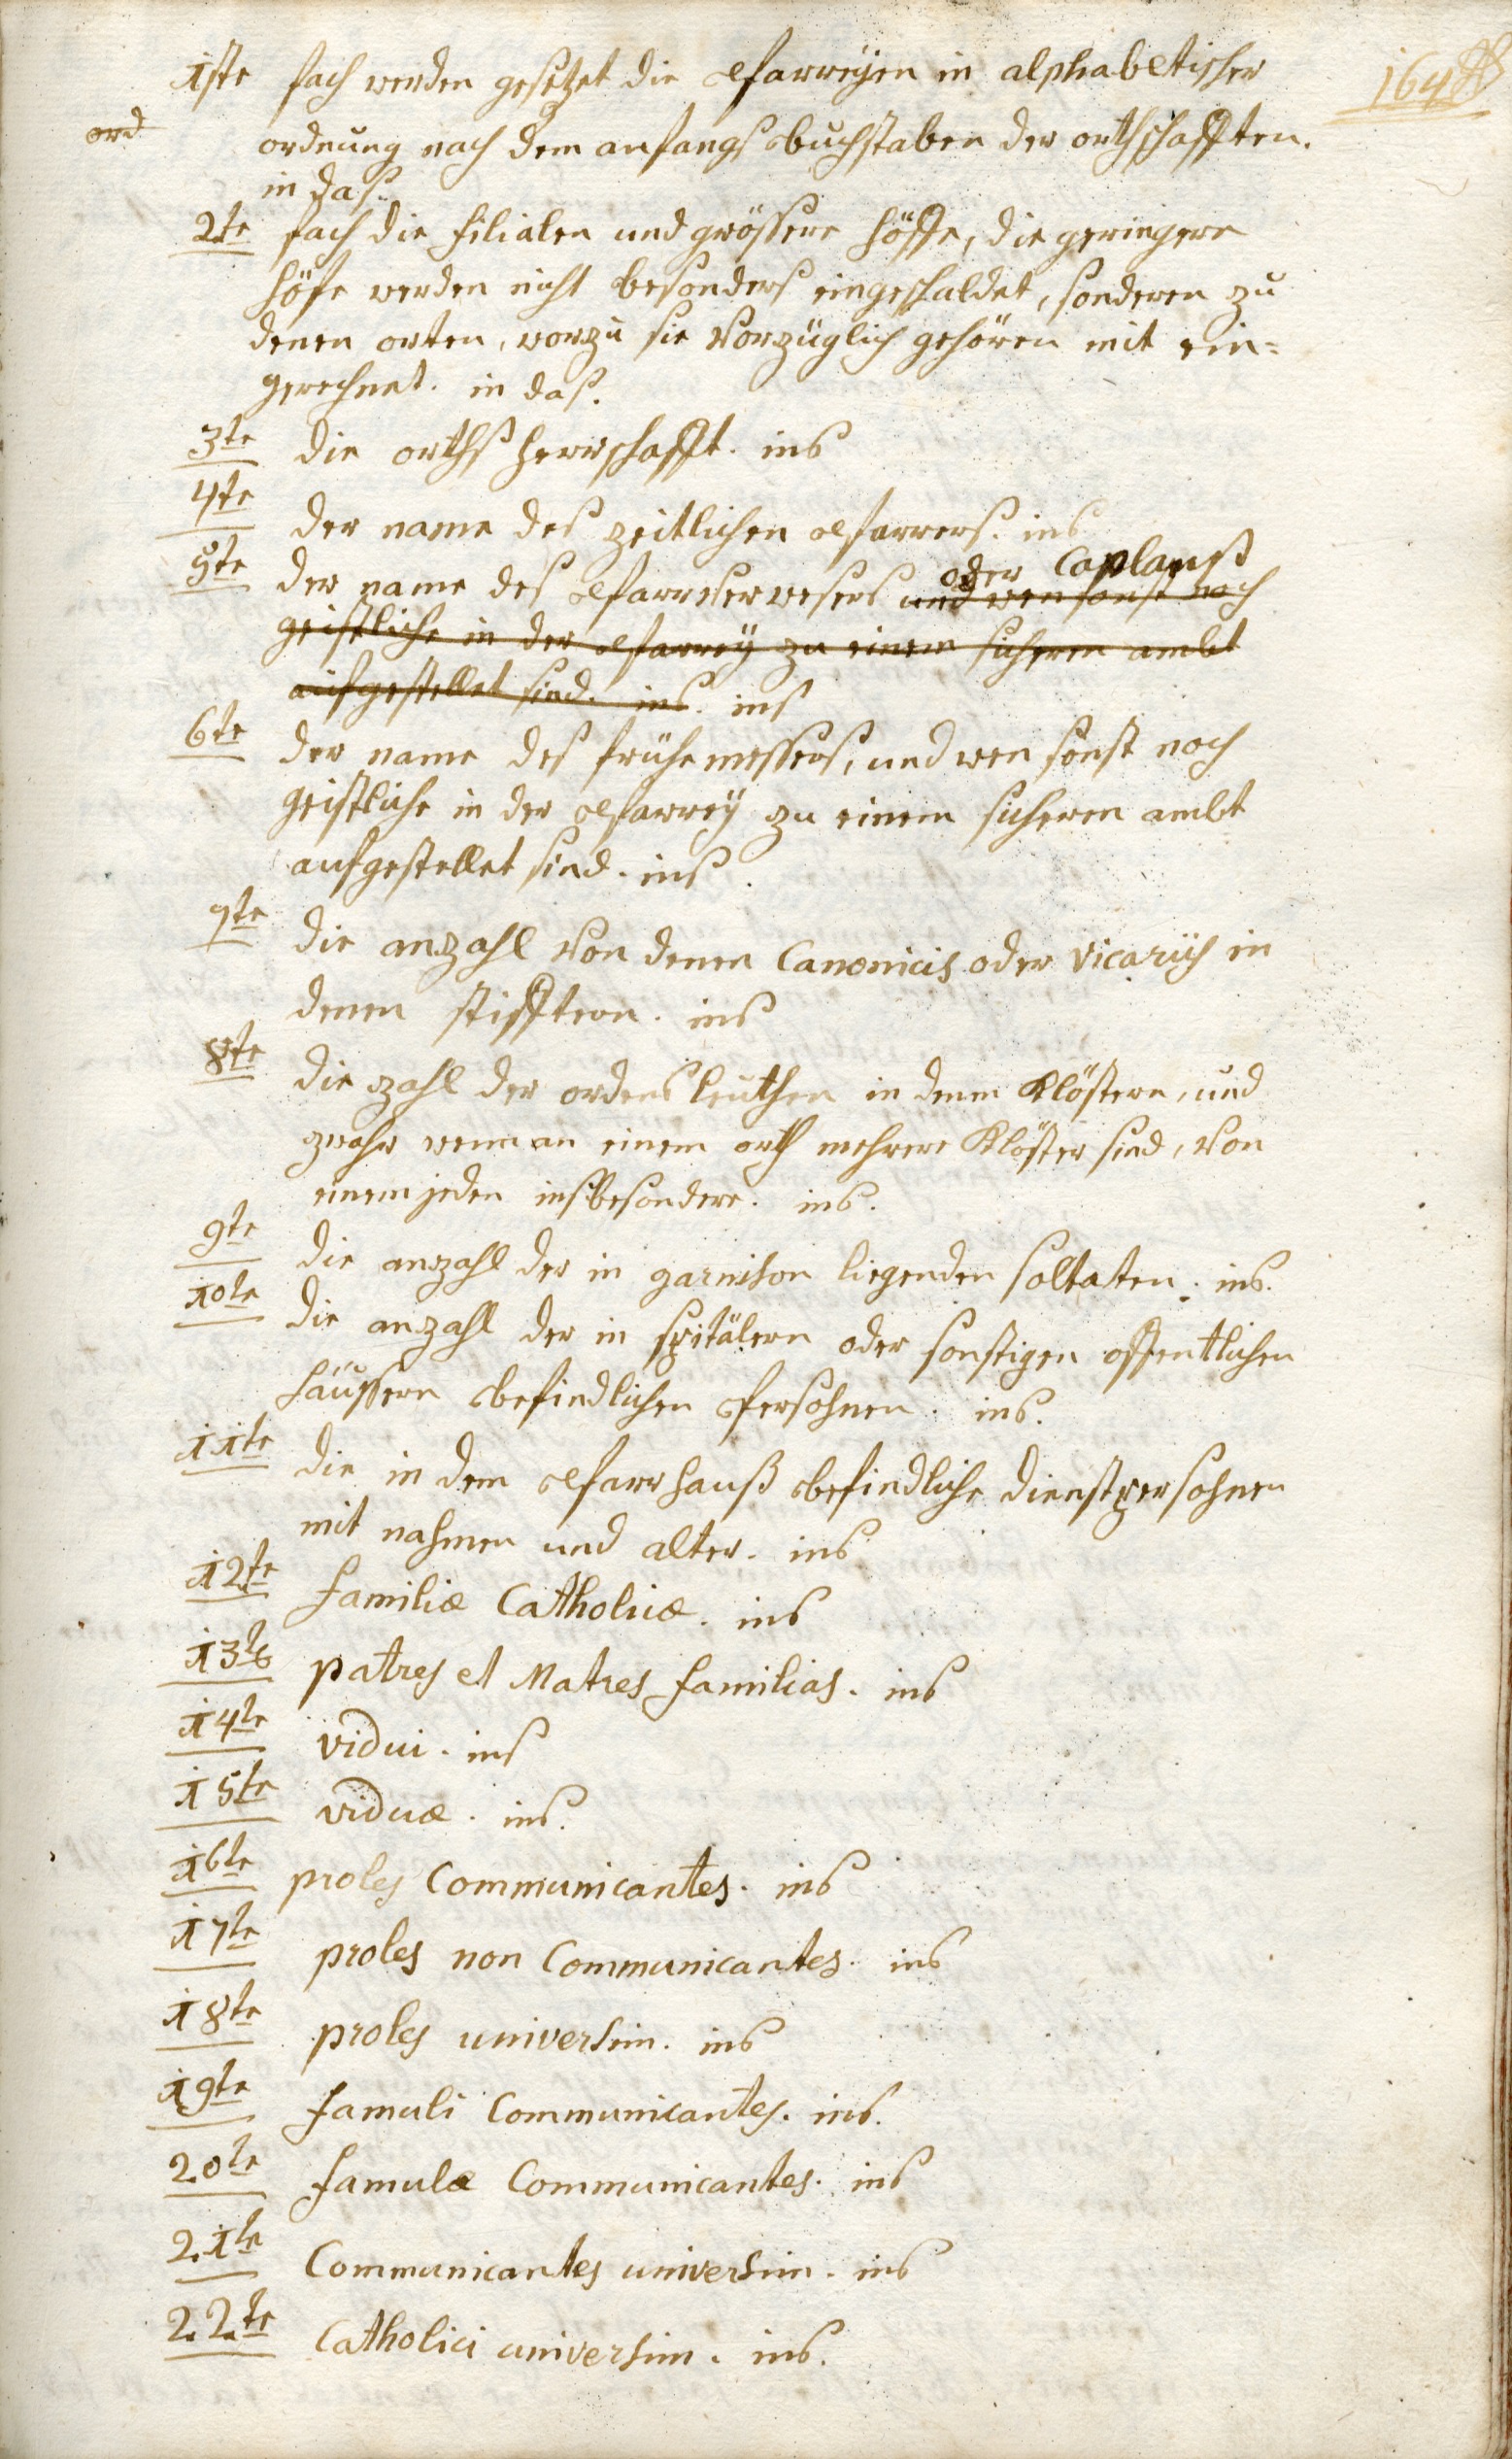 164
1ste fach werden gesetzet die Pfarreyen in alphabetischer
ord
ordnung nach dem anfangs buchstaben der orthschafften.
in das.
2te fach die filialen und grössere höffe, die geringere
höfe werden nicht besonders eingeschaldet, sonderen zu
denen orten, worzu sie vorzüglich gehören mit ein=
gerechnet. in das.
3te die orths herrschafft. ins
4te der name des zeitlichen Pfarrers. ins
oder Caplans
5te der name des Pfarrverwesers und wen sonst noch
geistliche in der Pfarrey zu einem sicheren ambt
aufgestellet sind. ins. ins
6te der name des frühemessers, und wen sonst noch
geistliche in der Pfarrey zu einem sicheren ambt
aufgestellet sind. ins.
7te die anzahl von denen Canonicis oder vicariis in
denen stifftern. ins
8te die zahl der ordens leuthen in denen Klöstern, und
zwahr wenn an einem orth mehrere Klöster sind, von
einem jeden insbesondere. ins.
9te die anzahl der in garnison liegenden soltaten. ins.
10te die anzahl der in spitälern oder sonstigen offentlichen
häussern befindlichen Persohnen. ins.
11te die in dem Pfarrhauß befindliche dienstpersohnen
mit nahmen und alter. ins
12te familiæ Catholicæ. ins
13te patres et Matres familias. ins
14te vidui. ins
15te viduæ. ins.
16te proles Communicantes. ins
17te proles non Communicantes. ins
18te proles universim. ins
19te famuli Communicantes. ins.
20te famulæ Communicantes. ins
21te Communicantes universim. ins
22te Catholici universim. ins.